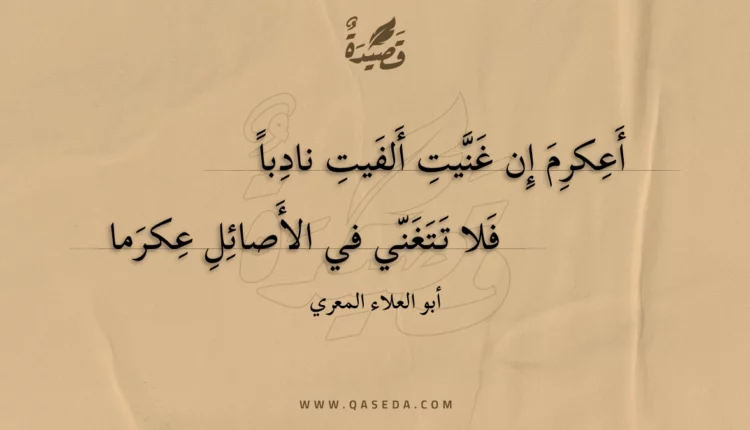 قَصِيدَةٌ
أَعِكرِمَ إِن غَنَّيتِ أَلفَيتِ نادِباً
فَلا تَتَغَنّي في الأَصائِلِ عِكرَما
أبو العلاء المعري
WWW.QASEDA.COM